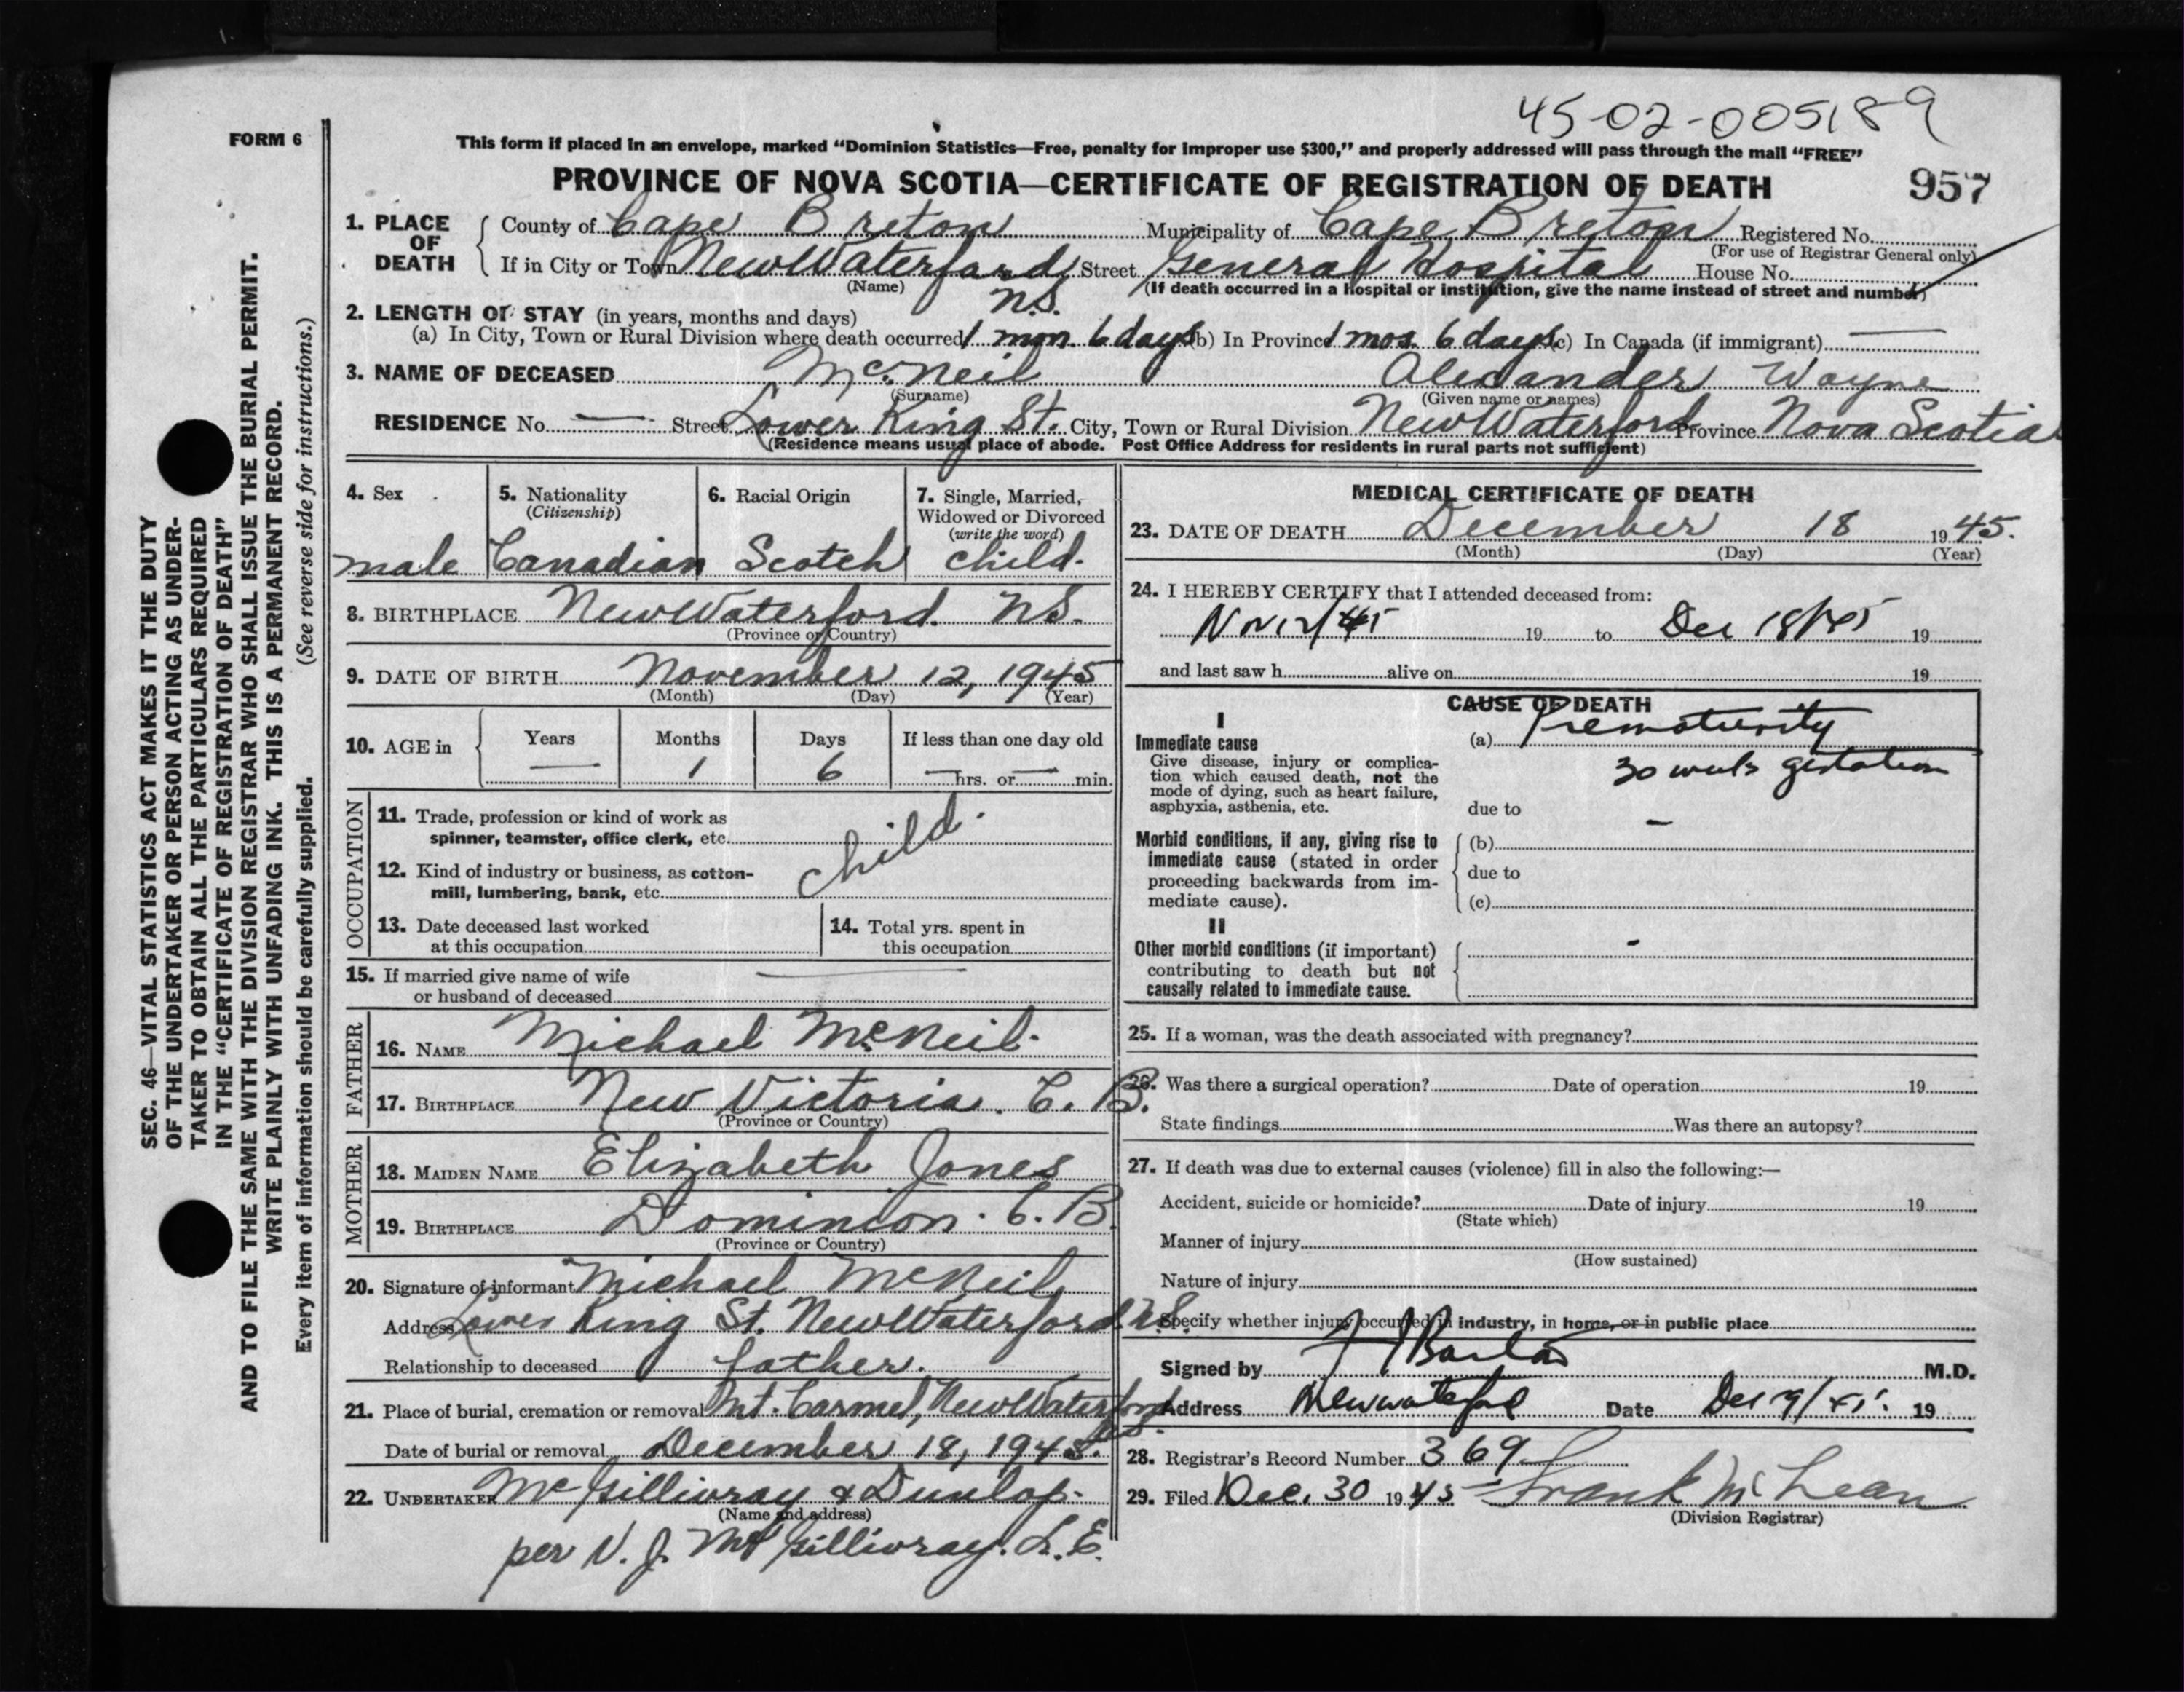 45-02-005189
FORM 6
This form if placed in an envelope, marked “Dominion Statistics—Free, penalty for improper use $300,” and properly addressed will pass through the mail “FREE”
PROVINCE OF NOVA SCOTIA—CERTIFICATE OF REGISTRATION OF DEATH 957
1. PLACE OF DEATH County of Cape Breton Municipality of Cape Breton Registered No.
(For use of Registrar General only)
If in City or Town New Waterford, N.S. Street General Hospital House No.
(Name) (If death occurred in a hospital or institution, give the name instead of street and number)
2. LENGTH OF STAY (in years, months and days)
(a) In City, Town or Rural Division where death occurred 1 mon. 6 days (b) In Province 1 mos. 6 days (c) In Canada (if immigrant) —
3. NAME OF DECEASED McNeil Alexander Wayne
(Surname) (Given name or names)
RESIDENCE No. — Street Lower King St. City, Town or Rural Division New Waterford Province Nova Scotia
(Residence means usual place of abode. Post Office Address for residents in rural parts not sufficient)
4. Sex male
5. Nationality (Citizenship) Canadian
6. Racial Origin Scotch
7. Single, Married, Widowed or Divorced (write the word) child.
8. BIRTHPLACE New Waterford. N.S.
(Province or Country)
9. DATE OF BIRTH November 12, 1945
(Month) (Day) (Year)
10. AGE in Years — Months 1 Days 6 If less than one day old — hrs. or — min.
OCCUPATION
11. Trade, profession or kind of work as spinner, teamster, office clerk, etc. child.
12. Kind of industry or business, as cotton-mill, lumbering, bank, etc.
13. Date deceased last worked at this occupation
14. Total yrs. spent in this occupation
15. If married give name of wife or husband of deceased —
FATHER
16. NAME Michael McNeil.
17. BIRTHPLACE New Victoria. C. B.
(Province or Country)
MOTHER
18. MAIDEN NAME Elizabeth Jones
19. BIRTHPLACE Dominion. C. B.
(Province or Country)
20. Signature of informant Michael McNeil
Address Lower King St. New Waterford N.S.
Relationship to deceased father.
21. Place of burial, cremation or removal Mt. Carmel, New Waterford
Date of burial or removal December 18, 1945.
22. UNDERTAKER McGillivray & Dunlop.
(Name and address)
per N. J. McGillivray. L. E.
MEDICAL CERTIFICATE OF DEATH
23. DATE OF DEATH December 18 1945.
(Month) (Day) (Year)
24. I HEREBY CERTIFY that I attended deceased from:
Nov 12/45 19 to Dec 18/45 19
and last saw h alive on 19
CAUSE OF DEATH
I
Immediate cause
Give disease, injury or complication which caused death, not the mode of dying, such as heart failure, asphyxia, asthenia, etc.
(a) Prematurity
30 weeks gestation
due to
Morbid conditions, if any, giving rise to immediate cause (stated in order proceeding backwards from immediate cause).
(b) —
due to
(c)
II
Other morbid conditions (if important) contributing to death but not causally related to immediate cause.
-
25. If a woman, was the death associated with pregnancy?
26. Was there a surgical operation? Date of operation 19
State findings Was there an autopsy?
27. If death was due to external causes (violence) fill in also the following:—
Accident, suicide or homicide? Date of injury 19
(State which)
Manner of injury
(How sustained)
Nature of injury
Specify whether injury occurred in industry, in home, or in public place
Signed by M.D.
Address New Waterford Date Dec 19/45. 19
28. Registrar's Record Number 369
29. Filed Dec. 30 1945 Frank McLean
(Division Registrar)
SEC. 46—VITAL STATISTICS ACT MAKES IT THE DUTY
OF THE UNDERTAKER OR PERSON ACTING AS UNDER-
TAKER TO OBTAIN ALL THE PARTICULARS REQUIRED
IN THE “CERTIFICATE OF REGISTRATION OF DEATH”
AND TO FILE THE SAME WITH THE DIVISION REGISTRAR WHO SHALL ISSUE THE BURIAL PERMIT.
WRITE PLAINLY WITH UNFADING INK. THIS IS A PERMANENT RECORD.
Every item of information should be carefully supplied. (See reverse side for instructions.)